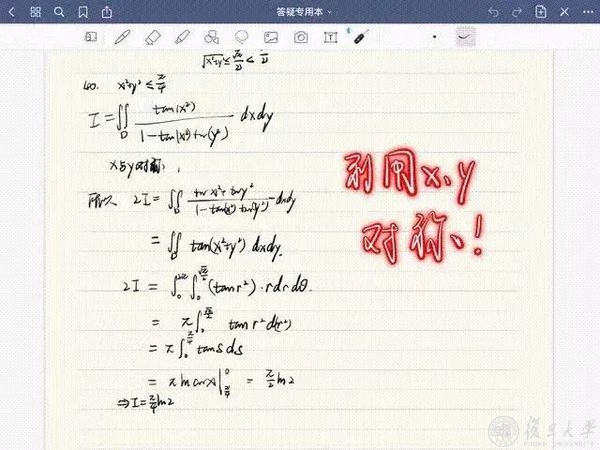 答疑专用本
√(x²+y²) ≤ √π/2 <
40. x²+y² ≤ π/4
I = ∬_D tan(x²) / (1-tan(x²)tan(y²)) dxdy
x与y对称，
所以 2I = ∬_D (tan x²+tan y²) / (1-tan(x²)tan(y²)) dxdy
= ∬_D tan(x²+y²) dxdy.
2I = ∫_0^{2π} ∫_0^{√π/2} (tan r²)·r dr dθ.
= π∫_0^{√π/2} tan r² d(r²)
= π∫_0^{π/4} tan s ds
= π ln cos x |_{π/4}^0 = π/2 ln2
⇒ I = π/4 ln2
利用x、y
对称、！
復旦大学
FUDAN UNIVERSITY